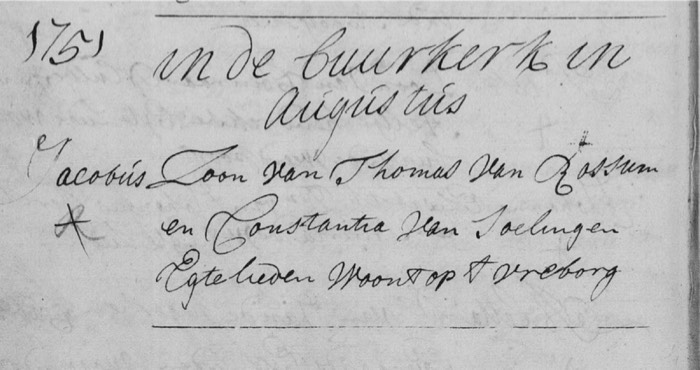 1751
in de buurkerk in
Augustus
Jacobus Zoon van Thomas van Rossum
en Constantia van Soelingen
Egtelieden Woont op t vreborg